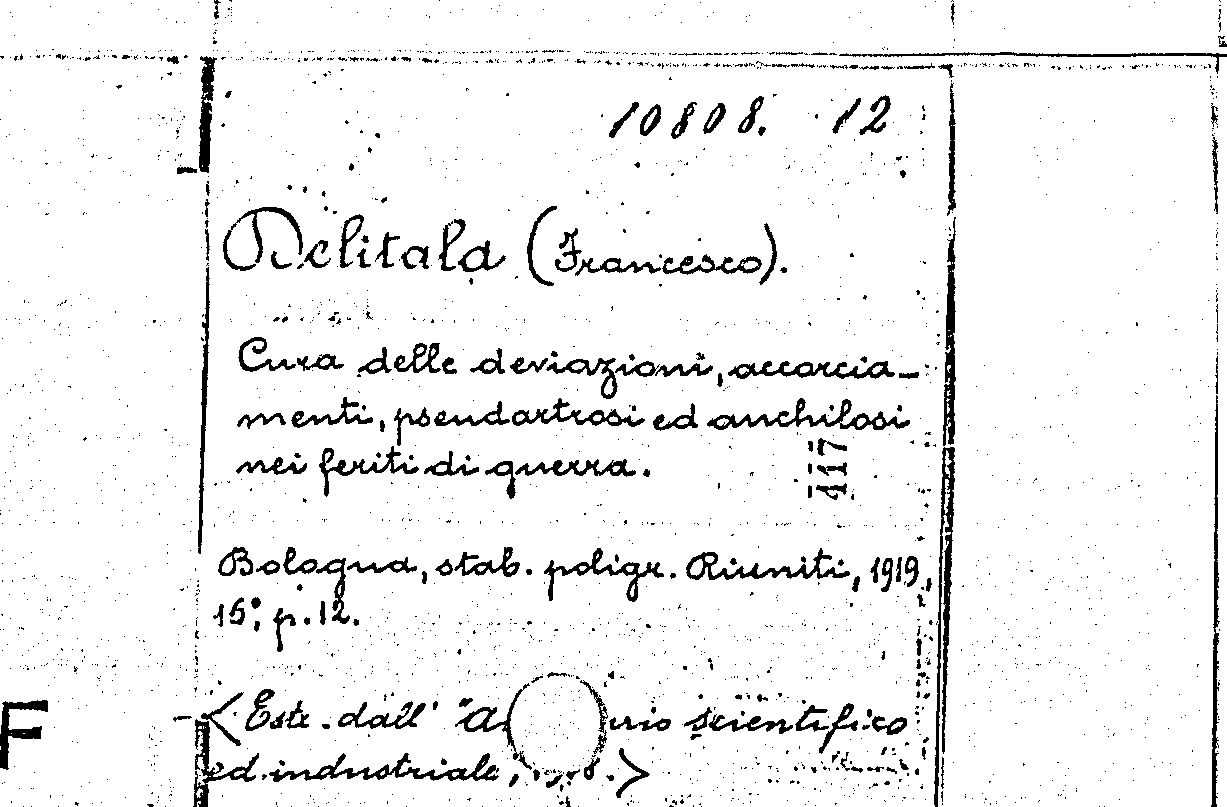 10808. 12
Delitala (Francesco).
Cura delle deviazioni, accorcia-
menti, pseudartrosi ed anchilosi
nei feriti di guerra.
117
Bologna, stab. poligr. Riuniti, 1919,
15°, p. 12.
<Estr. dall' scientifico
ed industriale,
F